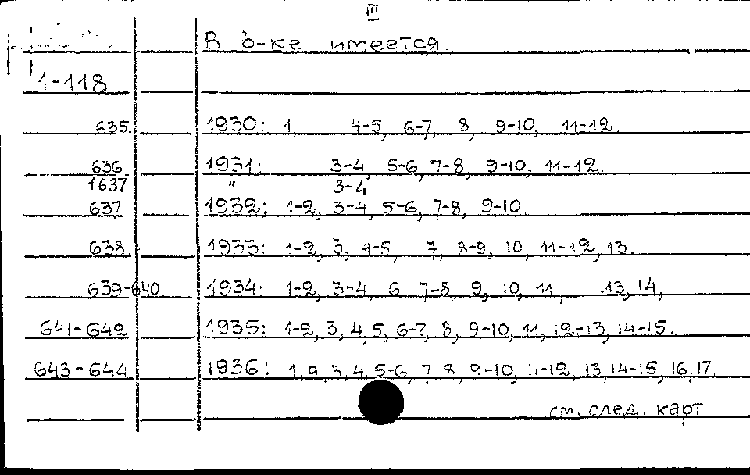 III
В б-ке имеется.
1-118
635. 1930: 1 4-5, 6-7, 8, 9-10, 11-12.
636 1931: 3-4, 5-6, 7-8, 9-10, 11-12.
1637 " 3-4
637 1932: 1-2, 3-4, 5-6, 7-8, 9-10.
638 1933: 1-2, 3, 4-5 7, 8-9, 10, 11-12, 13.
639-640. 1934: 1-2, 3-4, 6 7-8 9, 10, 11, 13, 14,
641-642 1935: 1-2, 3, 4, 5, 6-7, 8, 9-10, 11, 12-13, 14-15.
643-644 1936: 1, 2, 3, 4, 5-6, 7, 8, 9-10, 11-12, 13, 14-15, 16, 17.
см. след. карт